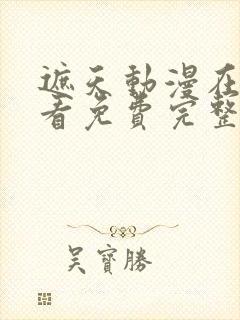 遮天動漫在
看免費完整
吳寶勝